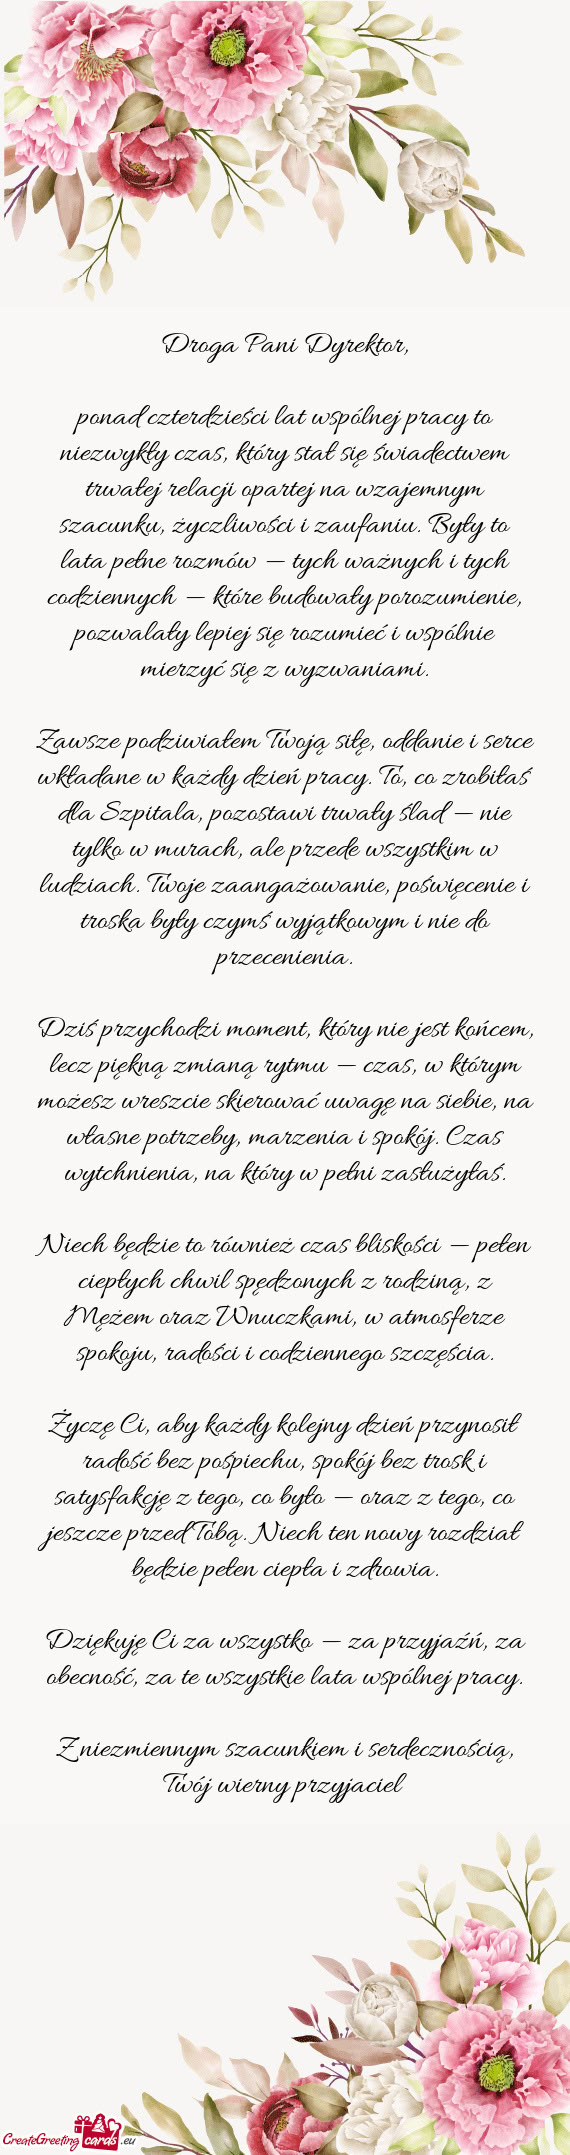 Droga Pani Dyrektor,
ponad czterdzieści lat wspólnej pracy to
niezwykły czas, który stał się świadectwem
trwałej relacji opartej na wzajemnym
szacunku, życzliwości i zaufaniu. Były to
lata pełne rozmów — tych ważnych i tych
codziennych — które budowały porozumienie,
pozwalały lepiej się rozumieć i wspólnie
mierzyć się z wyzwaniami.
Zawsze podziwiałem Twoją siłę, oddanie i serce
wkładane w każdy dzień pracy. To, co zrobiłaś
dla Szpitala, pozostawi trwały ślad — nie
tylko w murach, ale przede wszystkim w
ludziach. Twoje zaangażowanie, poświęcenie i
troska były czymś wyjątkowym i nie do
przecenienia.
Dziś przychodzi moment, który nie jest końcem,
lecz piękną zmianą rytmu — czas, w którym
możesz wreszcie skierować uwagę na siebie, na
własne potrzeby, marzenia i spokój. Czas
wytchnienia, na który w pełni zasłużyłaś.
Niech będzie to również czas bliskości — pełen
ciepłych chwil spędzonych z rodziną, z
Mężem oraz Wnuczkami, w atmosferze
spokoju, radości i codziennego szczęścia.
Życzę Ci, aby każdy kolejny dzień przynosił
radość bez pośpiechu, spokój bez trosk i
satysfakcję z tego, co było — oraz z tego, co
jeszcze przed Tobą. Niech ten nowy rozdział
będzie pełen ciepła i zdrowia.
Dziękuję Ci za wszystko — za przyjaźń, za
obecność, za te wszystkie lata wspólnej pracy.
Z niezmiennym szacunkiem i serdecznością,
Twój wierny przyjaciel
CreateGreeting cards .eu